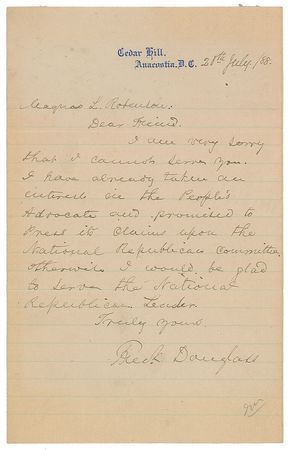 Cedar Hill,
Anacostia, D.C. 28th July /88.
Magnus L. Robinson:
Dear Friend.
I am very sorry
that I cannot serve you.
I have already taken an
interest in the People's
Advocate and promised to
Press its claims upon the
National Republican Committee
otherwise I would be glad
to serve the National
Republican Leader
Truly yours
Fredk Douglass